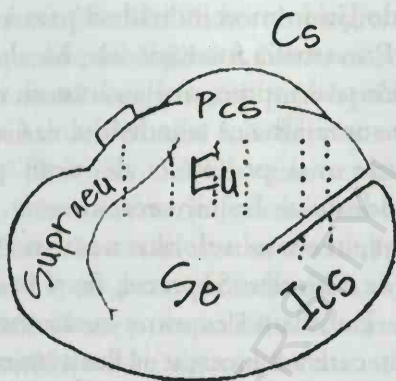 Cs
Pcs
Supraeu
Eu
Se
Ics